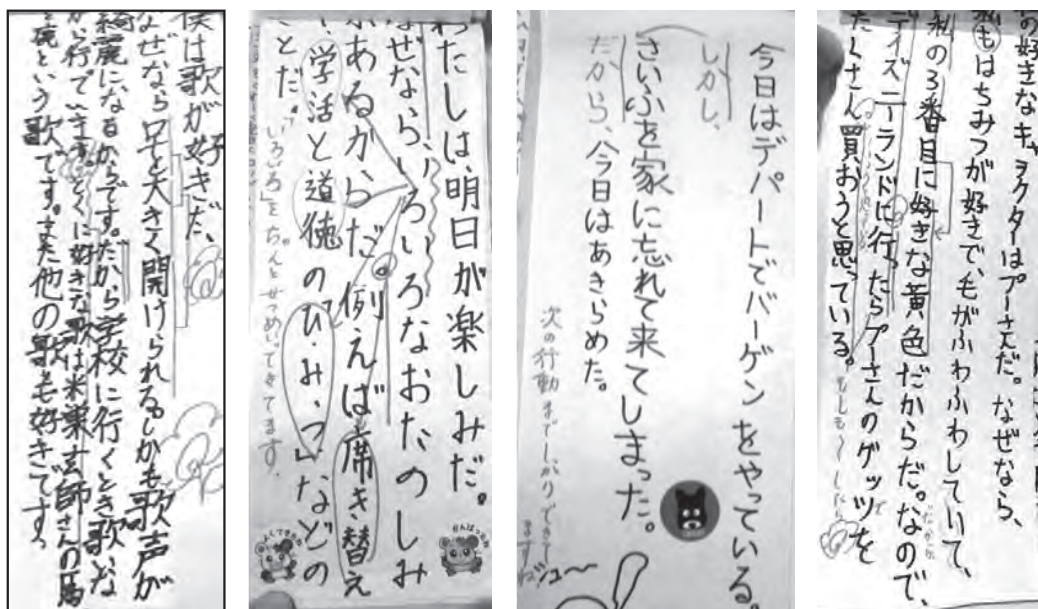 僕は歌が好きだ、
なぜなら口を大きく開けられるしかも歌声が
綺麗になるからです。だから学校に行くとき歌いな
がら行っています。とくに好きな歌は米栗玄師さんの馬
鹿という歌です。また他の歌も好きです。
わたしは、明日が楽しみだ。
なぜなら、いろいろなおたのしみ
があるからだ。例えば、席き替え
学活と道徳の「ひ、み、つ」などの
ことだ。
「いろいろ」をちゃんとせつめいできてます。
よくできました
がんばったね
今日はデパートでバーゲンをやっている。
しかし、
さいふを家に忘れて来てしまった。
だから、今日はあきらめた。
次の行動までしっかりできて
ますね!
の好きなキャラクターはプーさんだ。なぜなら、
私もはちみつが好きで、毛がふわふわしていて、
私の3番目に好きな黄色だからだ。なので、
だから
ディズニーランドに行ったらプーさんのグッツを
たくさん買おうと思っている。